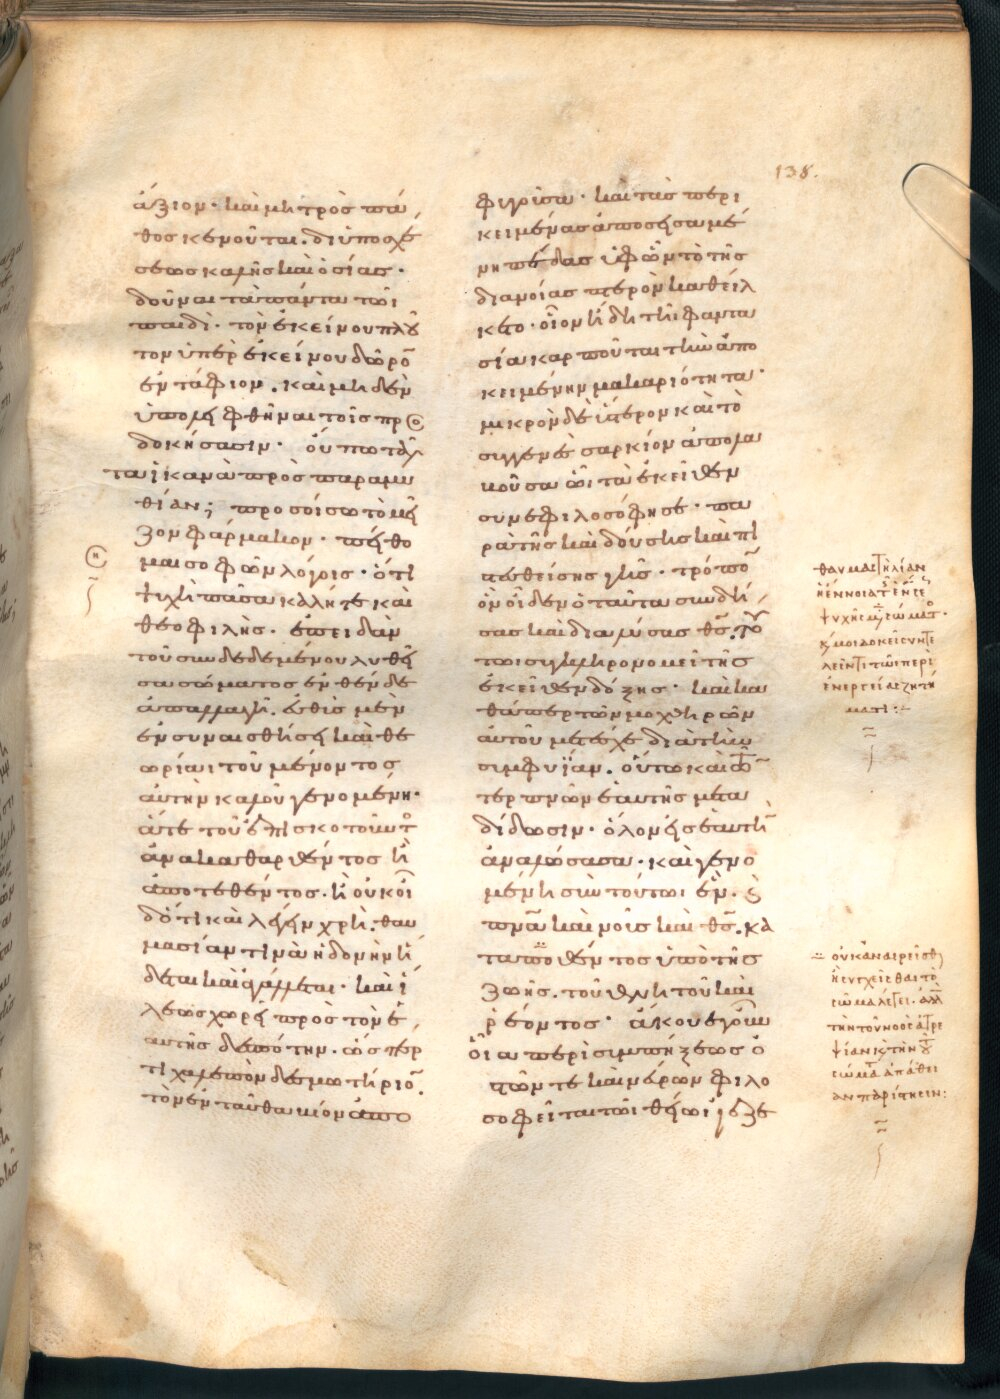 138.
ἄξιον· καὶ μητρὸς πά
θος κενοῦται. δι ὑποσχέ
σεως καλῆς καὶ ὁσίας·
δοῦναι τὰ πάντα τῶι
παιδὶ· τὸν ἐκείνου πλοῦ
τον ὑπὲρ ἐκείνου δῶρο̄
ἐντάφιον. καὶ μηδὲν
ὑπολειφθῆναι τοῖς προς
δοκήσασιν· οὔπω ταῦ
τα ἱκανὰ πρὸς παραμυ
θίαν; προσοίσω τὸ μεῖ
ζον φάρμακον· πείθο
μαι σοφῶν λόγοις· ὅτι
ψυχὴ πᾶσα καλή τε καὶ
θεοφιλὴς. ἐπειδὰν
τοῦ συνδεδεμένου λυθεῖ
σα σώματος ἐνθένδε
ἀπαλλαγῆ. εὐθὺς μὲν
ἐν συναισθήσει καὶ θε
ωρίαι τοῦ μένοντος
αὐτὴν καλοῦ γενομένη·
ἅτε τοῦ ἐπισκοτοῦντο
ἀνακαθαρθέντος ἢ
ἀποτεθέντος. ἢ οὐκ οἶ
δ ὅτι καὶ λέγειν χρὴ. θαυ
μασίαν τινὰ ἡδονὴν ἥ
δεται καὶ ἀγάλλεται· καὶ ἵ
λεως χωρεῖ πρὸς τὸν ἑ
αυτῆς δεσπότην. ὥσπερ
τι χαλεπὸν δεσμωτήριο̄.
τὸν ἐνταῦθα βίον ἀπο
φυγοῦσα· καὶ τὰς περι
κειμένας ἀποσεισαμέ
νη πέδας ὑφ ὧν τὸ τῆς
διανοίας πτερὸν καθείλ
κετο· οἷον ἤδη τῆι φαντα
σία καρποῦται τὴν ἀπο
κειμένην μακαριότητα·
μικρὸν δὲ ὕστερον καὶ τὸ
συγγενὲς σαρκίον ἀπολα
βοῦσα ὧι τὰ ἐκεῖθεν
συνεφιλοσόφησε· πα
ρὰ τῆς καὶ δούσης καὶ πι
στευθείσης γῆς· τρόπο̄
ὃν οἶδεν ὁ ταῦτα συνδή
σας καὶ διαλύσας θς̄. τού
τωι συγκληρονομεῖ τῆς
ἐκεῖθεν δόξης· καὶ κα
θάπερ τῶν μοχθηρῶν
αὐτοῦ μετέσχε διὰ τὴν
συμφυΐαν. οὕτω καὶ τῶ
τερπνῶν ἑαυτῆς μετα
δίδωσιν· ὅλον εἰς ἑαυτὴ
ἀναλώσασα. καὶ γενο
μένη σὺν τούτωι ἓν. ϗ
πνᾶ καὶ νοῦς καὶ θς̄. κα
ταποθέντος ὑπὸ τῆς
ζωῆς. τοῦ θνητοῦ καὶ
ῥέοντος· ἄκουε γοῦν
οἷα περὶ συμπήξεως ὀ
στῶν τε καὶ νεύρων φιλο
σοφεῖται τῶι θείωι ἰεζε
θαυμαστὴ λίαν
ἡ ἔννοια
ψυχῆς
κἀμοι δοκεῖ συντε
λεῖν τι τῶι περὶ
ἐνεργείας ζητή
ματι:
οὐκ ἀναιρεῖσθ
ἡ εὔχεσθαι τὸ
σῶμα λέγει. ἀλλ
τὴν τοῦ νοὸς ἀτρε
ψίαν κ τὴν τοῦ
σώμα ἀπάθει
αν παρίστησιν: